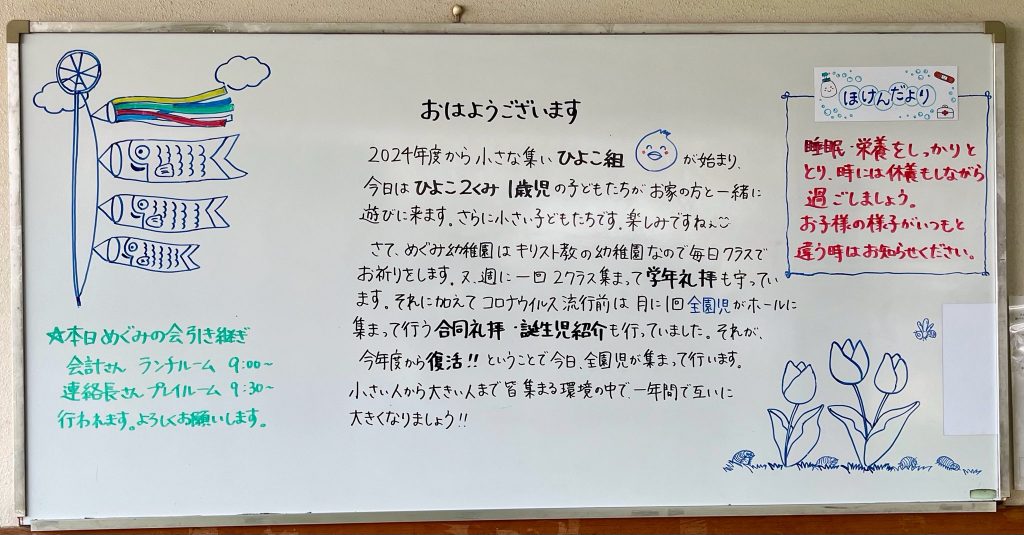 おはようございます
2024年度から小さな集い ひよこ組 が始まり、
今日は ひよこ2くみ 1歳児の子どもたちが お家の方と一緒に
遊びに来ます。さらに小さい子どもたちです。楽しみですねぇ
さて、めぐみ幼稚園は キリスト教の幼稚園なので毎日クラスで
お祈りをします。又、週に一回 2クラス集まって 学年礼拝も守ってい
ます。それに加えて コロナウイルス流行前は 月に1回 全園児がホールに
集まって行う 合同礼拝・誕生児紹介も行っていました。それが、
今年度から復活!! ということで今日、全園児が集まって行います。
小さい人から大きい人まで皆集まる環境の中で、一年間で互いに
大きくなりましょう!!
☆本日めぐみの会引き継ぎ
会計さん ランチルーム 9:00～
連絡長さん プレイルーム 9:30～
行われます。よろしくお願いします。
ほけんだより
睡眠・栄養をしっかりと
とり、時には休養もしながら
過ごしましょう。
お子様の様子がいつもと
違う時はお知らせください。